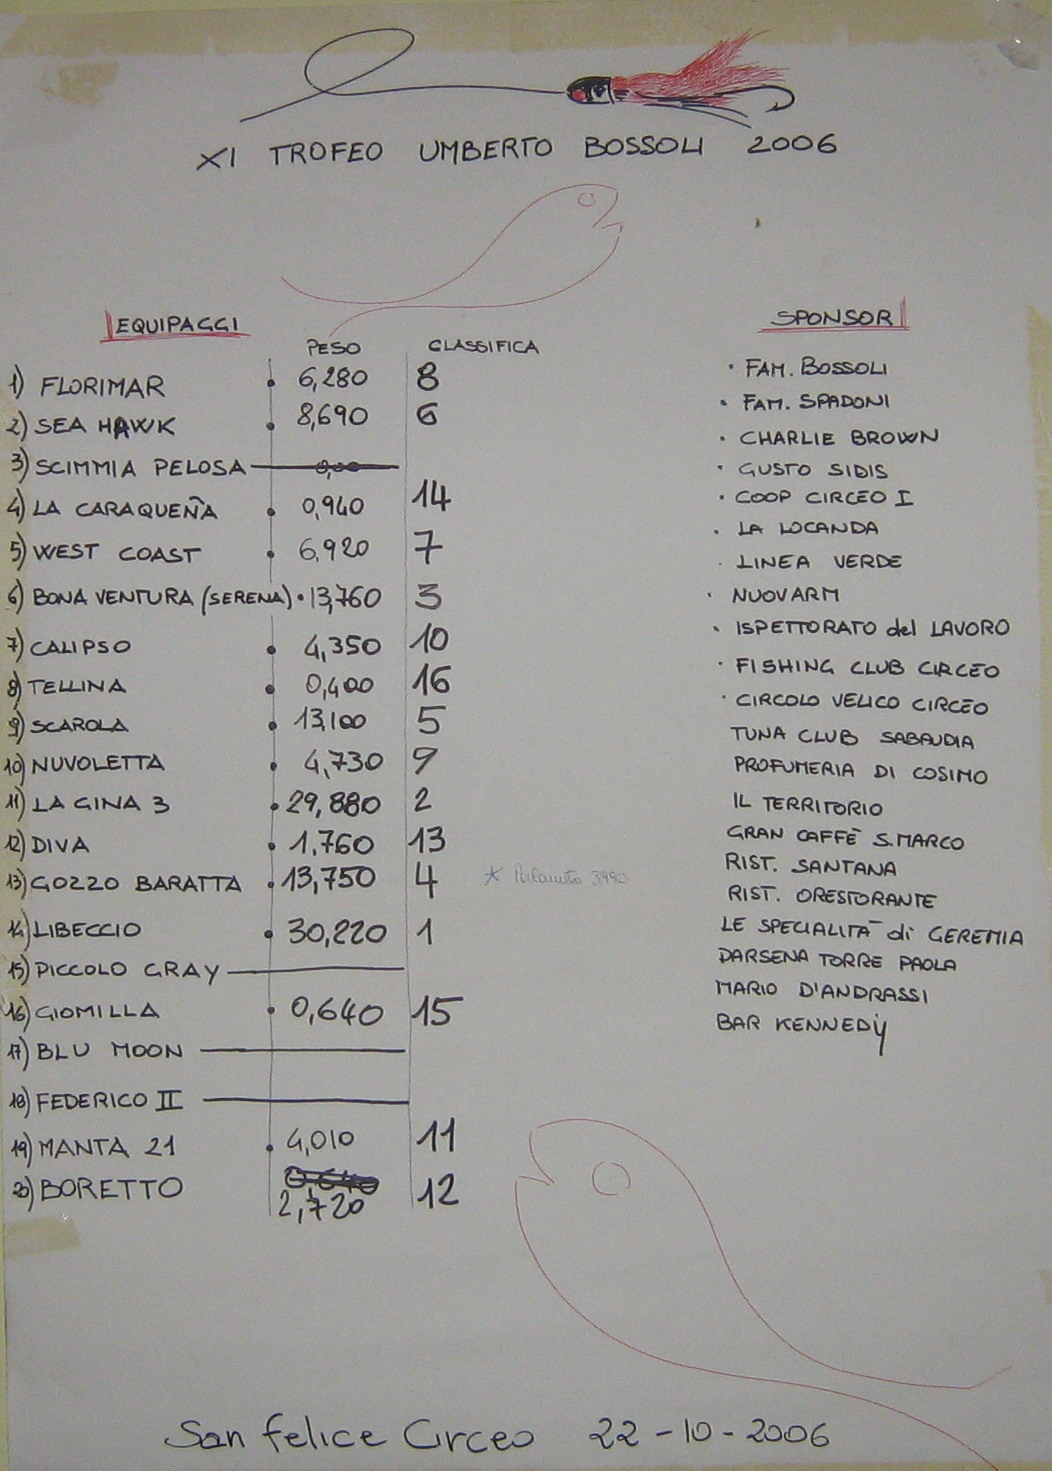 XI TROFEO UMBERTO BOSSOLI 2006
EQUIPAGGI
PESO CLASSIFICA
1) FLORIMAR • 6,280 8
2) SEA HAWK • 8,690 6
3) SCIMMIA PELOSA 0,00
4) LA CARAQUEÑA • 0,940 14
5) WEST COAST • 6,920 7
6) BONA VENTURA (SERENA) • 13,760 3
7) CALIPSO • 4,350 10
8) TELLINA • 0,400 16
9) SCAROLA • 13,100 5
10) NUVOLETTA • 4,730 9
11) LA GINA 3 • 29,880 2
12) DIVA • 1,760 13
13) GOZZO BARATTA • 13,750 4 * 3990
14) LIBECCIO • 30,220 1
15) PICCOLO GRAY
16) GIOMILLA • 0,640 15
17) BLU MOON
18) FEDERICO II
19) MANTA 21 • 4,010 11
20) BORETTO 0,640 2,720 12
SPONSOR
• FAM. BOSSOLI
• FAM. SPADONI
• CHARLIE BROWN
• GUSTO SIDIS
• COOP CIRCEO I
• LA LOCANDA
• LINEA VERDE
• NUOVARM
• ISPETTORATO del LAVORO
• FISHING CLUB CIRCEO
• CIRCOLO VELICO CIRCEO
TUNA CLUB SABAUDIA
PROFUMERIA DI COSIMO
IL TERRITORIO
GRAN CAFFÈ S.MARCO
RIST. SANTANA
RIST. ORESTORANTE
LE SPECIALITÀ di GEREMIA
DARSENA TORRE PAOLA
MARIO D'ANDRASSI
BAR KENNEDY
San Felice Circeo 22-10-2006